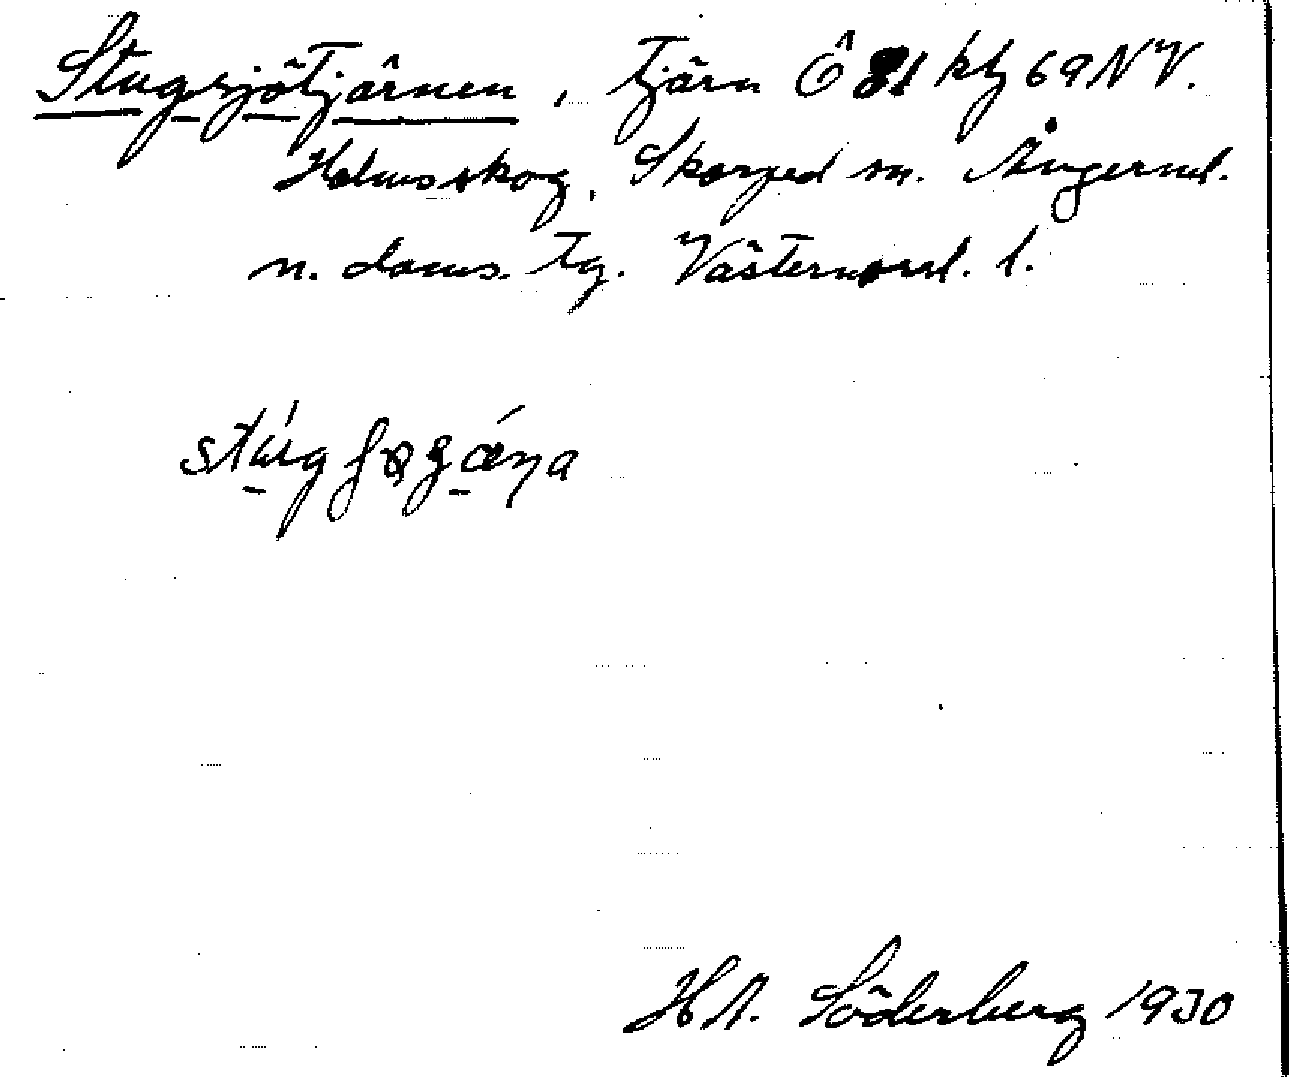 Stugsjötjärnen, tjärn Ö 81 kbl 69 NV.
Holmsskog, Skorped sn. Ångerml.
n. doms. tg. Västernorrl. l.
H A. Söderberg 1930